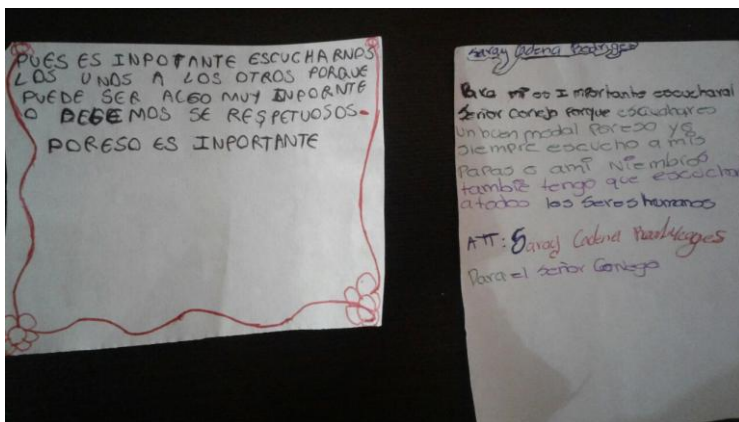 PUES ES INPOTANTE ESCUCHARNOS
LOS UNOS A LOS OTROS PORQUE
PUEDE SER ALGO MUY INPORNTE
O DEBEMOS SE RESPETUOSOS.
PORESO ES INPORTANTE
Saray Cadena Rodriges
Para mi es Importante escucharal
Señor Conejo Porque escuchares
un buen modal Poreso yo
siempre escucho a mis
Papas o ami Niembros
tambiē tengo que escuchar
atodos los Seres humanos
ATT: Saray Cadena
Para el Señor Conego